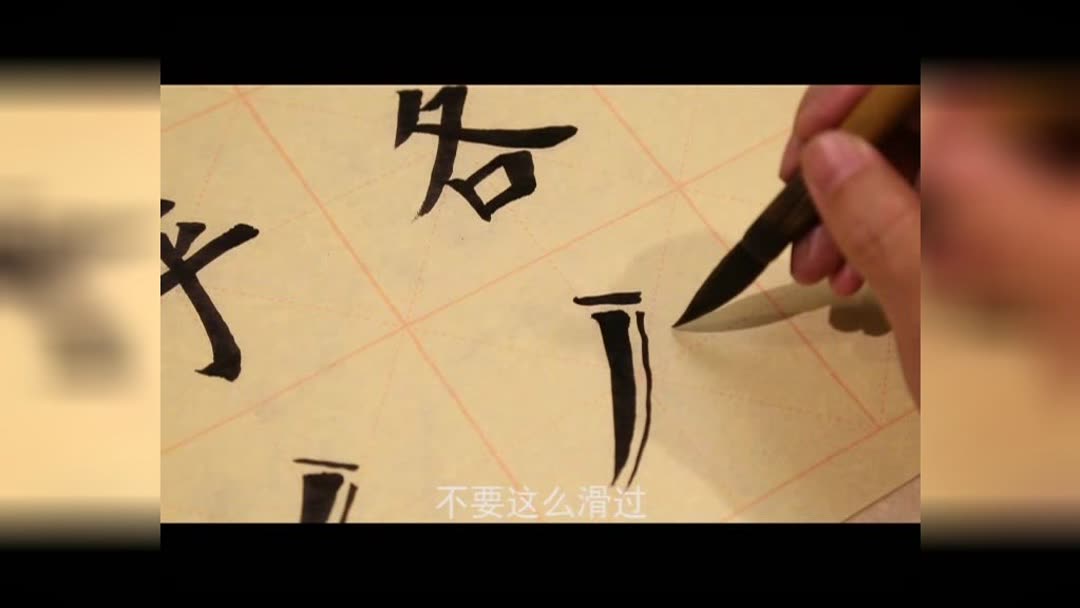 各
不要这么滑过